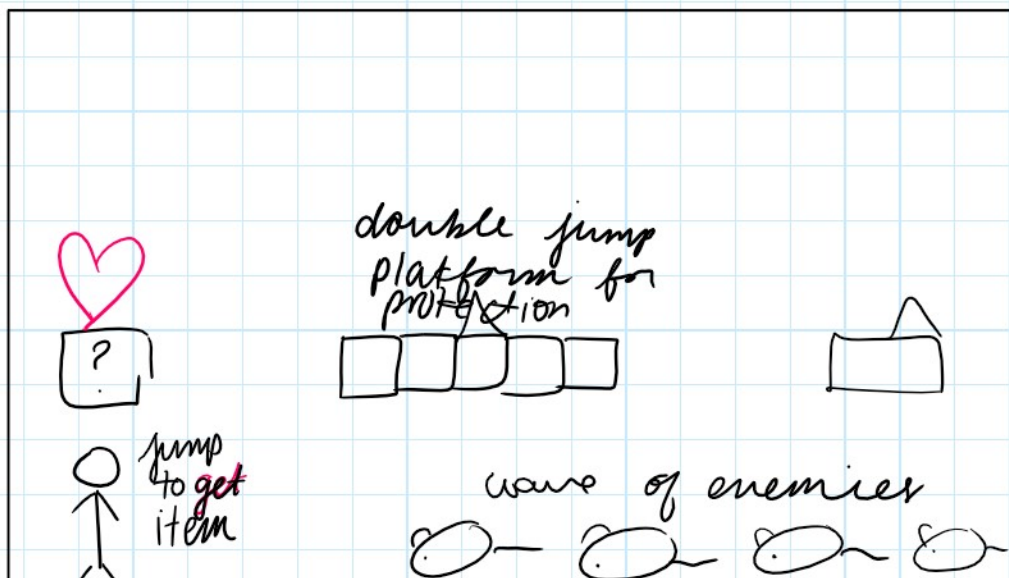 double jump
platform for
protection
?
jump
to get
item
wave of enemies